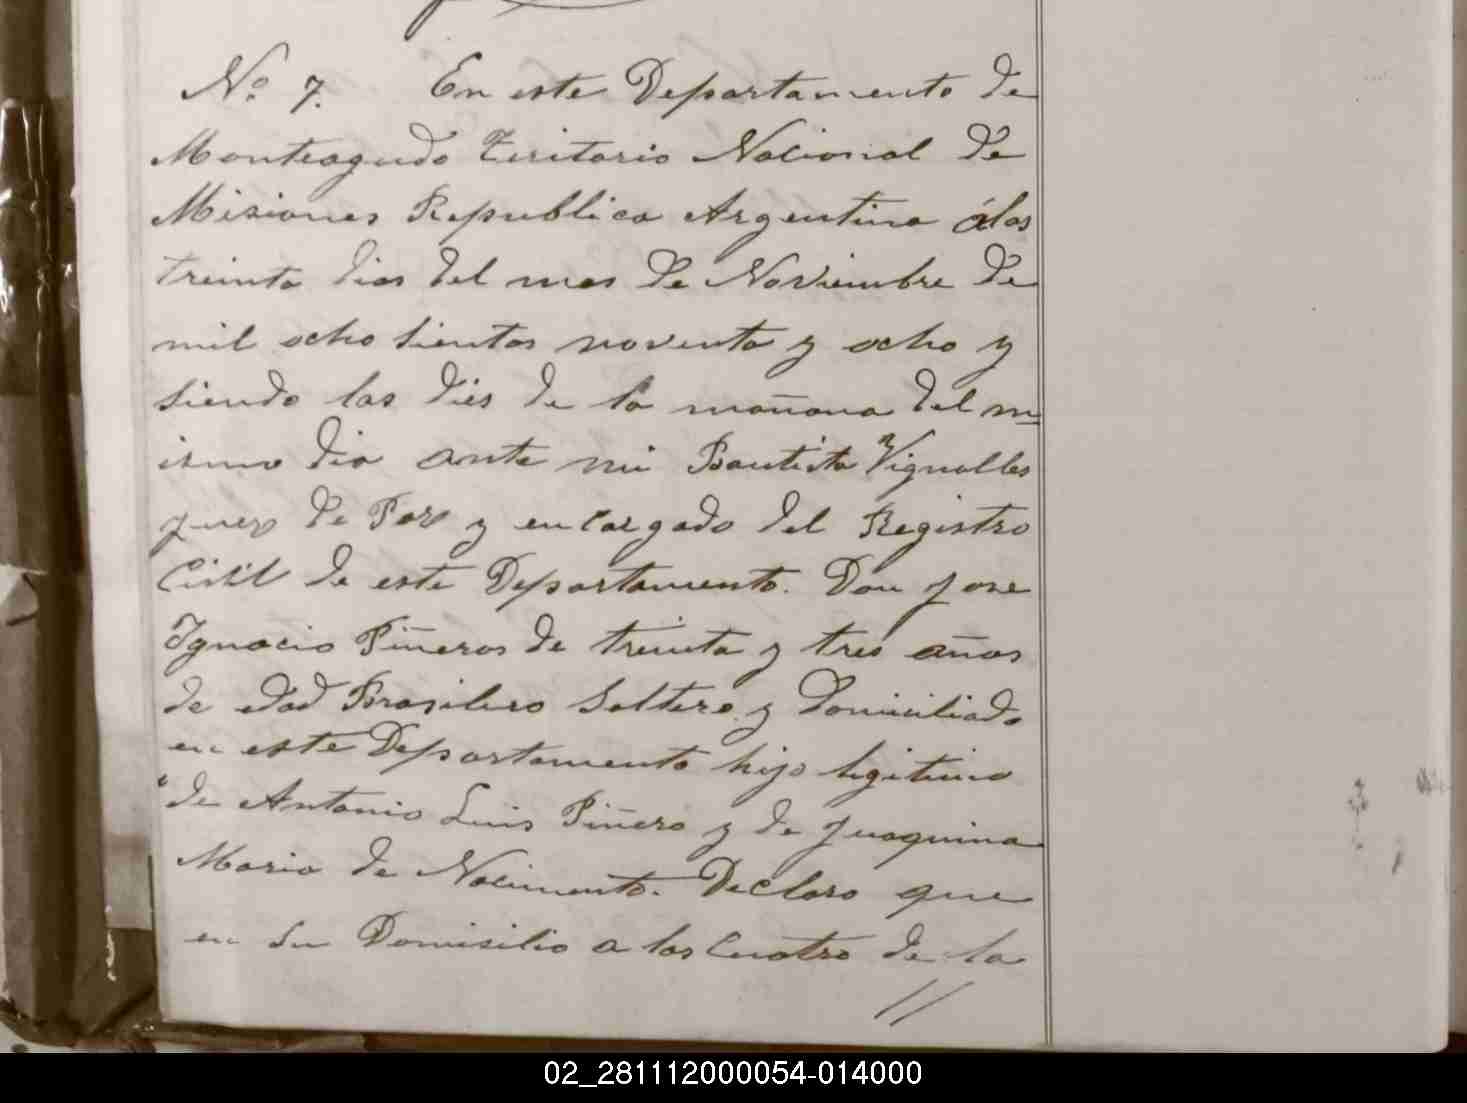 Nº 7. En este Departamento de
Monteagudo Teritorio Nacional de
Misiones Republica Argentina á los
treinta dias del mes de Noviembre de
mil ocho sientos noventa y ocho y
siendo las dies de la mañana del m
ismo dia ante mi Bautista Vignolles
juez de Paz y encargado del Registro
Civil de este Departamento. Don Jose
Ignacio Piñeros de treinta y tres años
de edad Brasilero Soltero y Domiciliado
en este Departamento hijo ligitimo
de Antonio Luis Piñero y de Juaquina
Maria de Nacimento. Declaro que
en su Domisilio a las Cuatro de la
//
02_281112000054-014000